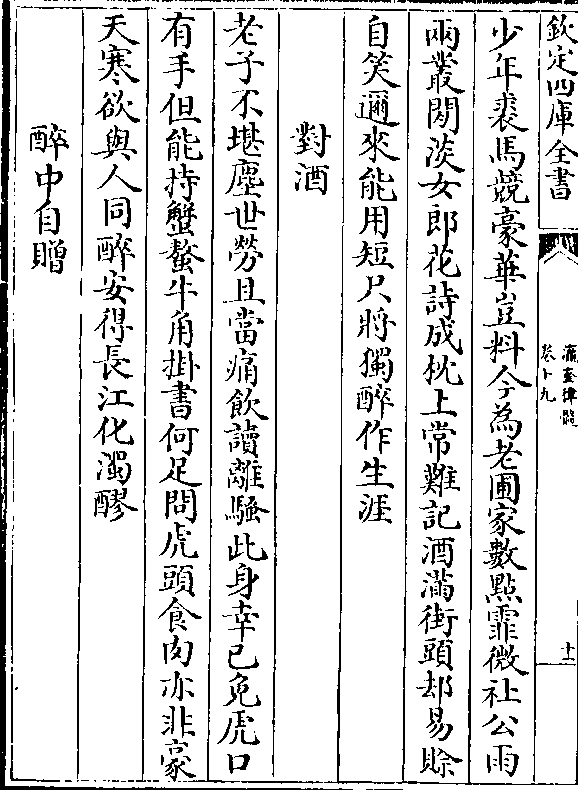 欽定四庫全書
瀛奎律髓
卷十九
十一
少年裘馬競豪華豈料今為老圃家數點霏微社公雨
兩叢閒淡女郎花詩成枕上常難記酒滿街頭却易賒
自笑邇來能用短只將獨醉作生涯
對酒
老子不堪塵世勞且當痛飲讀離騷此身幸已免虎口
有手但能持蟹螯牛角掛書何足問虎頭食肉亦非豪
天寒欲與人同醉安得長江化濁醪
醉中自贈